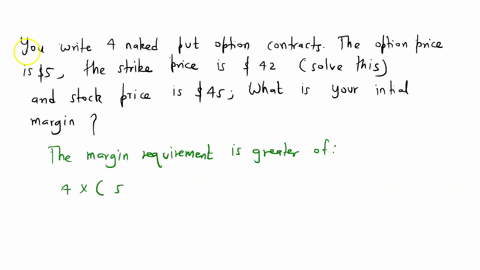 You write 4 naked put option contracts. The option price
is $5, the strike price is $ 42 (solve this)
and stock price is $45; What is your inital
margin ?
The margin requirement is greater of:
4 x ( 5